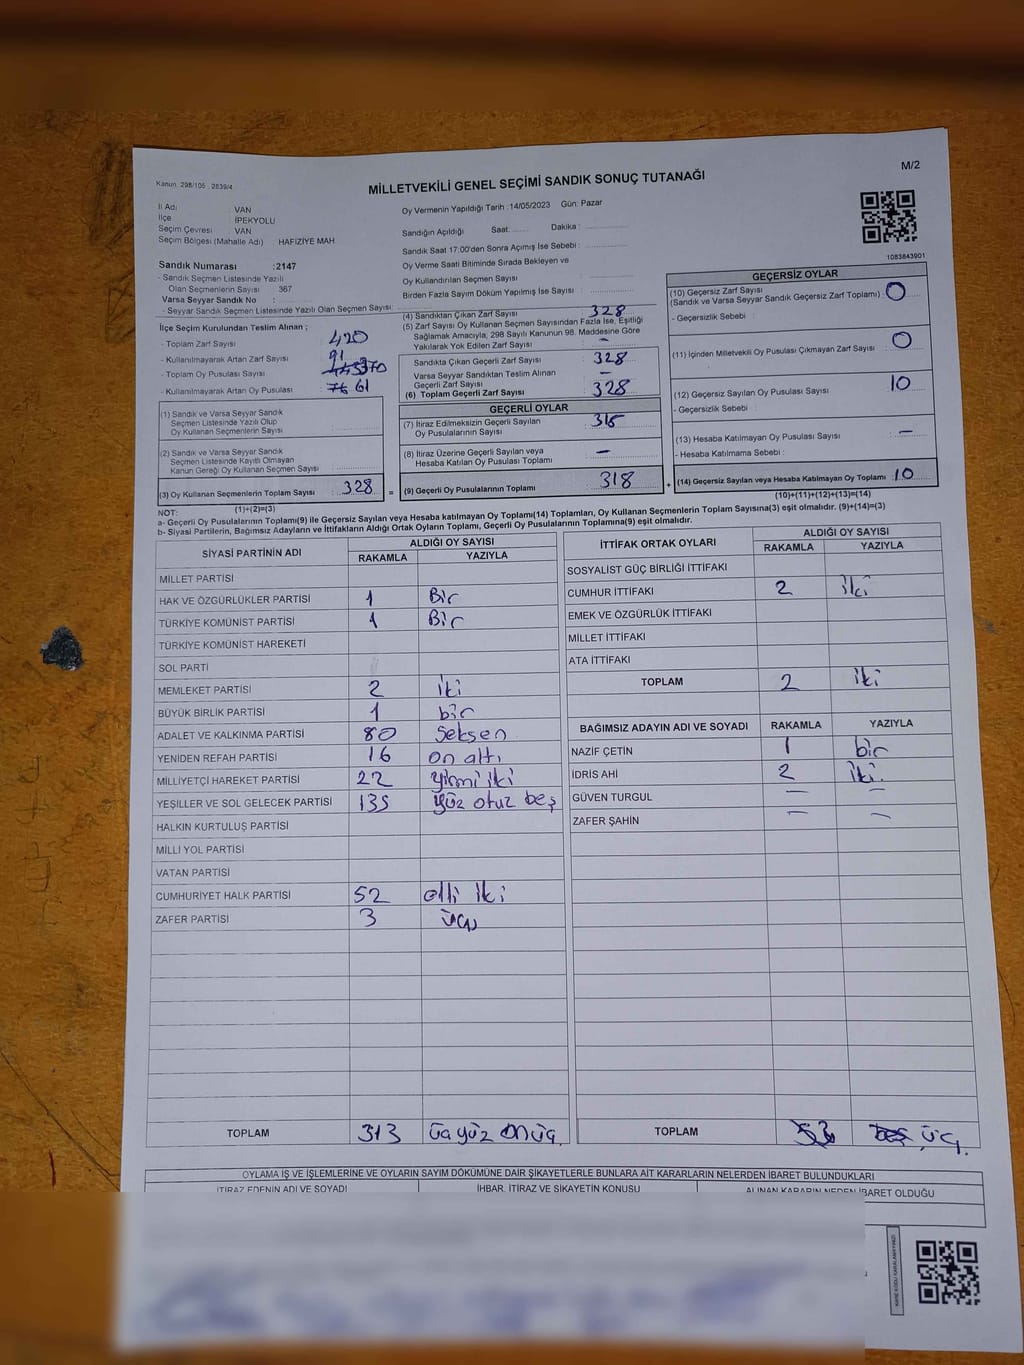 M/2
Kanun: 298/105 , 2839/4
MİLLETVEKİLİ GENEL SEÇİMİ SANDIK SONUÇ TUTANAĞI
İl Adı : VAN
İlçe : İPEKYOLU
Seçim Çevresi : VAN
Seçim Bölgesi (Mahalle Adı) HAFIZİYE MAH.
Sandık Numarası :2147
- Sandık Seçmen Listesinde Yazılı
Olan Seçmenlerin Sayısı 367
Varsa Seyyar Sandık No :
- Seyyar Sandık Seçmen Listesinde Yazılı Olan Seçmen Sayısı:
Oy Vermenin Yapıldığı Tarih :14/05/2023 Gün: Pazar
Sandığın Açıldığı Saat: Dakika :
Sandık Saat 17:00'den Sonra Açımış İse Sebebi :
Oy Verme Saati Bitiminde Sırada Bekleyen ve
Oy Kullandırılan Seçmen Sayısı
Birden Fazla Sayım Döküm Yapılmış İse Sayısı :
1083843901
İlçe Seçim Kurulundan Teslim Alınan ;
- Toplam Zarf Sayısı : 420
- Kullanılmayarak Artan Zarf Sayısı : 91
- Toplam Oy Pusulası Sayısı : 370
- Kullanılmayarak Artan Oy Pusulası : 76 61
(1) Sandık ve Varsa Seyyar Sandık
Seçmen Listesinde Yazılı Olup
Oy Kullanan Seçmenlerin Sayısı
(2) Sandık ve Varsa Seyyar Sandık
Seçmen Listesinde Kayıtlı Olmayan
Kanun Gereği Oy Kullanan Seçmen Sayısı
(3) Oy Kullanan Seçmenlerin Toplam Sayısı : 328 =
(1)+(2)=(3)
(4) Sandıktan Çıkan Zarf Sayısı : 328
(5) Zarf Sayısı Oy Kullanan Seçmen Sayısından Fazla İse, Eşitliği
Sağlamak Amacıyla, 298 Sayılı Kanunun 98. Maddesine Göre
Yakılarak Yok Edilen Zarf Sayısı : –
Sandıkta Çıkan Geçerli Zarf Sayısı : 328
Varsa Seyyar Sandıktan Teslim Alınan
Geçerli Zarf Sayısı –
(6) Toplam Geçerli Zarf Sayısı : 328
GEÇERLİ OYLAR
(7) İtiraz Edilmeksizin Geçerli Sayılan
Oy Pusulalarının Sayısı : 318
(8) İtiraz Üzerine Geçerli Sayılan veya
Hesaba Katılan Oy Pusulası Toplamı : –
(9) Geçerli Oy Pusulalarının Toplamı : 318 +
GEÇERSİZ OYLAR
(10) Geçersiz Zarf Sayısı
(Sandık ve Varsa Seyyar Sandık Geçersiz Zarf Toplamı) : 0
- Geçersizlik Sebebi :
(11) İçinden Milletvekili Oy Pusulası Çıkmayan Zarf Sayısı : 0
(12) Geçersiz Sayılan Oy Pusulası Sayısı : 10
- Geçersizlik Sebebi :
(13) Hesaba Katılmayan Oy Pusulası Sayısı : –
- Hesaba Katılmama Sebebi :
(14) Geçersiz Sayılan veya Hesaba Katılmayan Oy Toplamı : 10
(10)+(11)+(12)+(13)=(14)
NOT:
a- Geçerli Oy Pusulalarının Toplamı(9) ile Geçersiz Sayılan veya Hesaba Katılmayan Oy Toplamı(14) Toplamları, Oy Kullanan Seçmenlerin Toplam Sayısına(3) eşit olmalıdır. (9)+(14)=(3)
b- Siyasi Partilerin, Bağımsız Adayların ve İttifakların Aldığı Ortak Oyların Toplamı, Geçerli Oy Pusulalarının Toplamına(9) eşit olmalıdır.
SİYASİ PARTİNİN ADI ALDIĞI OY SAYISI
RAKAMLA YAZIYLA
MİLLET PARTİSİ
HAK VE ÖZGÜRLÜKLER PARTİSİ 1 Bir
TÜRKİYE KOMÜNİST PARTİSİ 1 Bir
TÜRKİYE KOMÜNİST HAREKETİ
SOL PARTİ
MEMLEKET PARTİSİ 2 iki
BÜYÜK BİRLİK PARTİSİ 1 bir
ADALET VE KALKINMA PARTİSİ 80 Seksen
YENİDEN REFAH PARTİSİ 16 on altı
MİLLİYETÇİ HAREKET PARTİSİ 22 yirmi iki
YEŞİLLER VE SOL GELECEK PARTİSİ 135 yüz otuz beş
HALKIN KURTULUŞ PARTİSİ
MİLLİ YOL PARTİSİ
VATAN PARTİSİ
CUMHURİYET HALK PARTİSİ 52 elli iki
ZAFER PARTİSİ 3 üç
TOPLAM 313 üçyüz onüç.
İTTİFAK ORTAK OYLARI ALDIĞI OY SAYISI
RAKAMLA YAZIYLA
SOSYALİST GÜÇ BİRLİĞİ İTTİFAKI
CUMHUR İTTİFAKI 2 iki
EMEK VE ÖZGÜRLÜK İTTİFAKI
MİLLET İTTİFAKI
ATA İTTİFAKI
TOPLAM 2 iki
BAĞIMSIZ ADAYIN ADI VE SOYADI RAKAMLA YAZIYLA
NAZİF ÇETİN 1 bir
İDRİS AHİ 2 iki.
GÜVEN TURGUL – –
ZAFER ŞAHİN – –
TOPLAM 3 beş üç.
OYLAMA İŞ VE İŞLEMLERİNE VE OYLARIN SAYIM DÖKÜMÜNE DAİR ŞİKAYETLERLE BUNLARA AİT KARARLARIN NELERDEN İBARET BULUNDUKLARI
İTİRAZ EDENİN ADI VE SOYADI İHBAR, İTİRAZ VE ŞİKAYETİN KONUSU ALINAN KARARIN NEDEN İBARET OLDUĞU